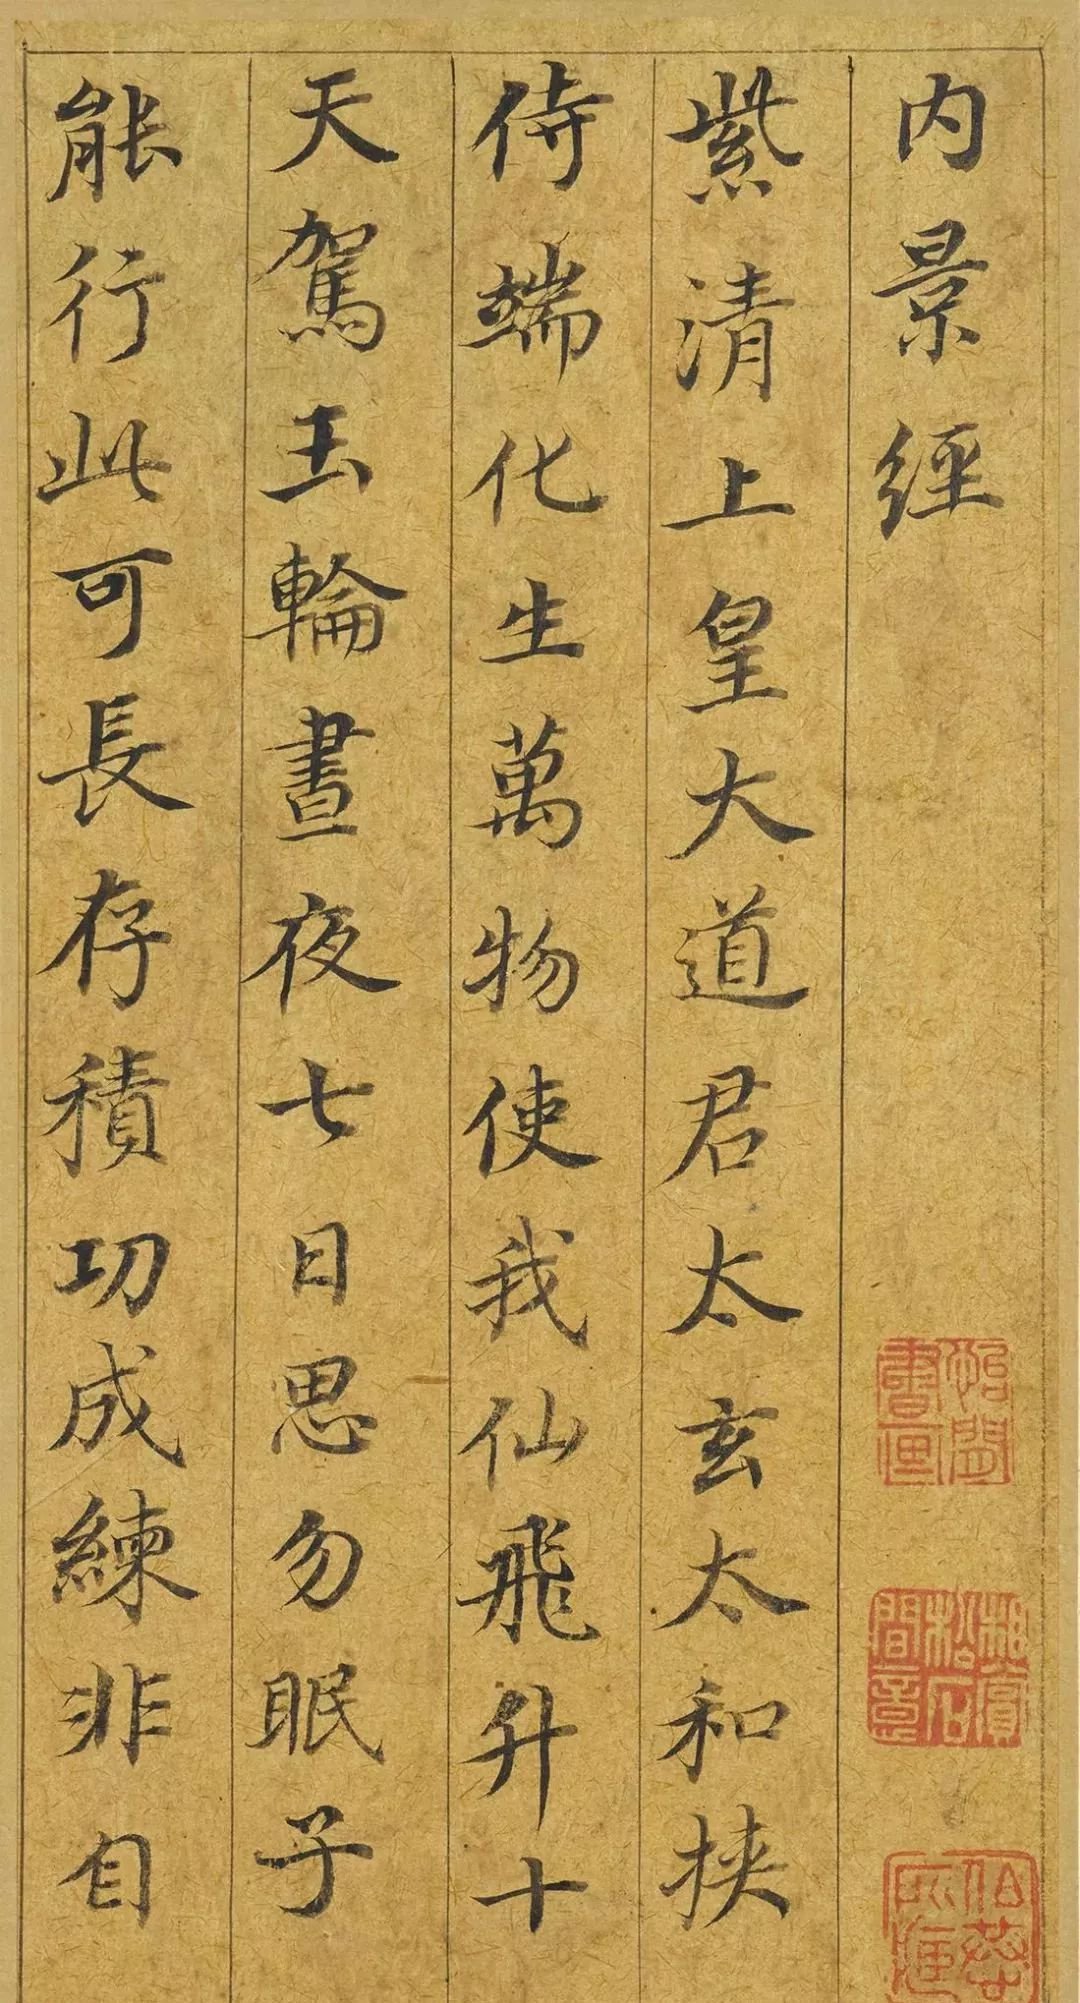 内景經
紫清上皇大道君太玄太和挾
侍端化生萬物使我仙飛升十
天駕玉輪晝夜七日思勿眠子
能行此可長存積功成練非自
書画